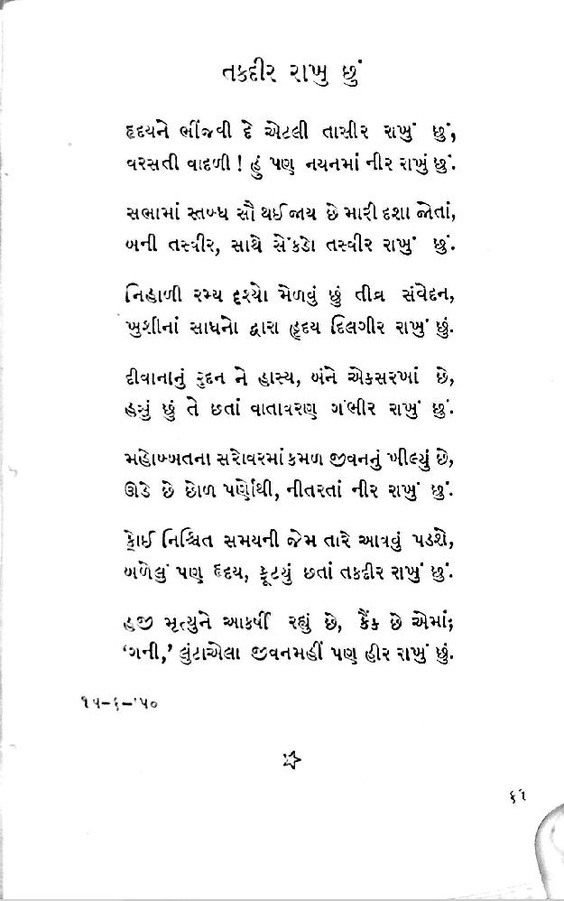 તકદીર રાખુ છું
હૃદયને ભીંજવી દે એટલી તાસીર રાખું છું,
વરસતી વાદળી ! હું પણ નયનમાં નીર રાખું છું.
સભામાં સ્તબ્ધ સૌ થઈ જાય છે મારી દશા જોતાં,
બની તસ્વીર, સાથે સેંકડો તસ્વીર રાખું છું.
નિહાળી રમ્ય દૃશ્યો મેળવું છું તીવ્ર સંવેદન,
ખુશીનાં સાધનો દ્વારા હૃદય દિલગીર રાખું છું.
દીવાનાનું રુદન ને હાસ્ય, બંને એકસરખાં છે,
હસું છું તે છતાં વાતાવરણ ગંભીર રાખું છું.
મહોબ્બતના સરોવરમાં કમળ જીવનનું ખીલ્યું છે,
ઊડે છે છોળ પર્ણોથી, નીતરતાં નીર રાખું છું.
કોઈ નિશ્ચિત સમયની જેમ તારે આવવું પડશે,
બળેલું પણ હૃદય, ફૂટયું છતાં તકદીર રાખું છું.
હજી મૃત્યુને આકર્ષી રહ્યું છે, કૈંક છે એમાં;
‘ગની,’ લુંટાએલા જીવનમહીં પણ હીર રાખું છું.
૧૫-૬-’૫૦
૬૧